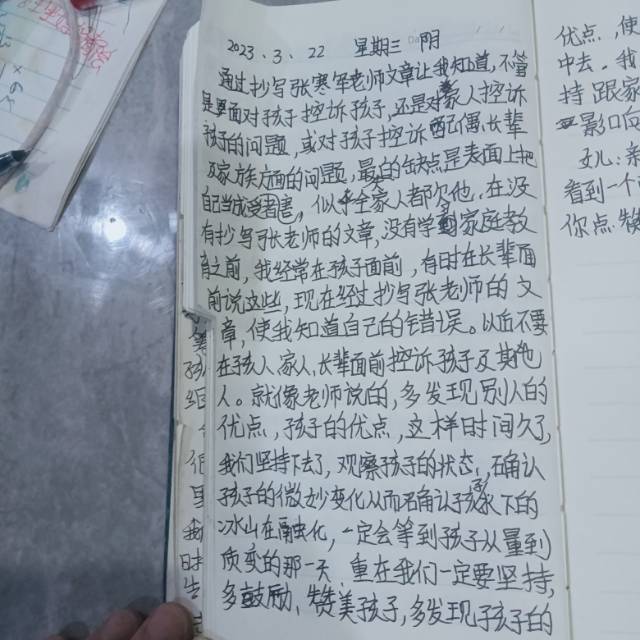 2023.3.22 星期三 阴
通过抄写张寒军老师文章让我知道,不管
是要面对孩子控诉孩子,还是对家人控诉
孩子的问题,或对孩子控诉配偶、长辈
及家族方面的问题,最的缺点是表面上把
自己当成受害,似乎全家人都欠他,在没
有抄写张老师的文章,没有学到家庭教
育之前,我经常在孩子面前,有时在长辈面
前说这些,现在经过抄写张老师的文
章,使我知道自己的错误。以后不要
在孩人家人、长辈面前控诉孩子及其他
人。就像老师说的,多发现别人的
优点,孩子的优点,这样时间久了,
我们坚持下去了,观察孩子的状态,确认
孩子的微妙变化从而确认孩子水下的
冰山在融化,一定会等到孩子从量到
质变的那一天,重在我们一定要坚持,
多鼓励、赞美孩子,多发现孩子的
优点,使
中去。我
持跟家
影响
看到一个
你点赞